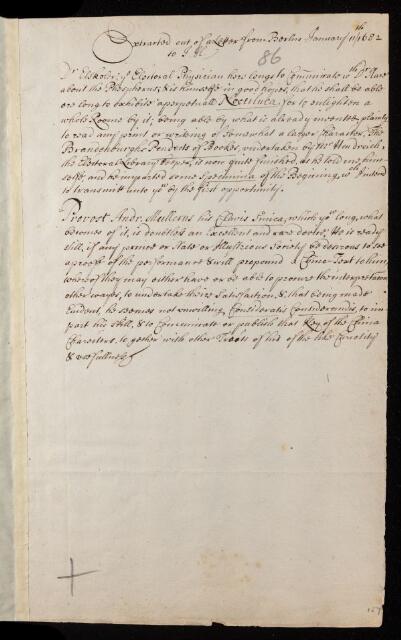 Extracted out of a Letter from Berlin January 11th 1682
to
86
Dr Elsholz ye Electoral Physician here longs to Comunicate wth Dr Slare
about the Phosphorus, & is himselfe in good hopes, that he shall be able
ere long to exhibite a perpetuall Noctiluca, for to enlighten a
whole Roome by it, being able by what is already invented, plainly
to read any print or writeing of somewhat a larger Character. The
Brandenburgh Pandects of Bookes, undertaken by Mr Hendreich,
the Electoral Library keeper, is now quite finished, as he told me, him-
selfe, and he imparted some Specimina of the Beginning, wch I intend
to transmitt unto yu by the first opportunity.
Provost Andr. Mullerus his Clavis Sinica, which yu long, what
becomes of it, is doubtles an Excellent and rare device. He is ready
still, if any prince or State or Illustrious Society be desirous to see
a proofe of the performance & will propound a China-Text to him,
whereof they may either have or be able to procure the interpretation
other wayes, to undertake theire Satisfaction, & that being made
Evident, he seemes not unwilling, Consideratis Considerandis, to im-
part his skill, & to Comunicate or publish that Key of the China
Characters, together with other Treats of his of the like Curiosity
& usefullnesse
157